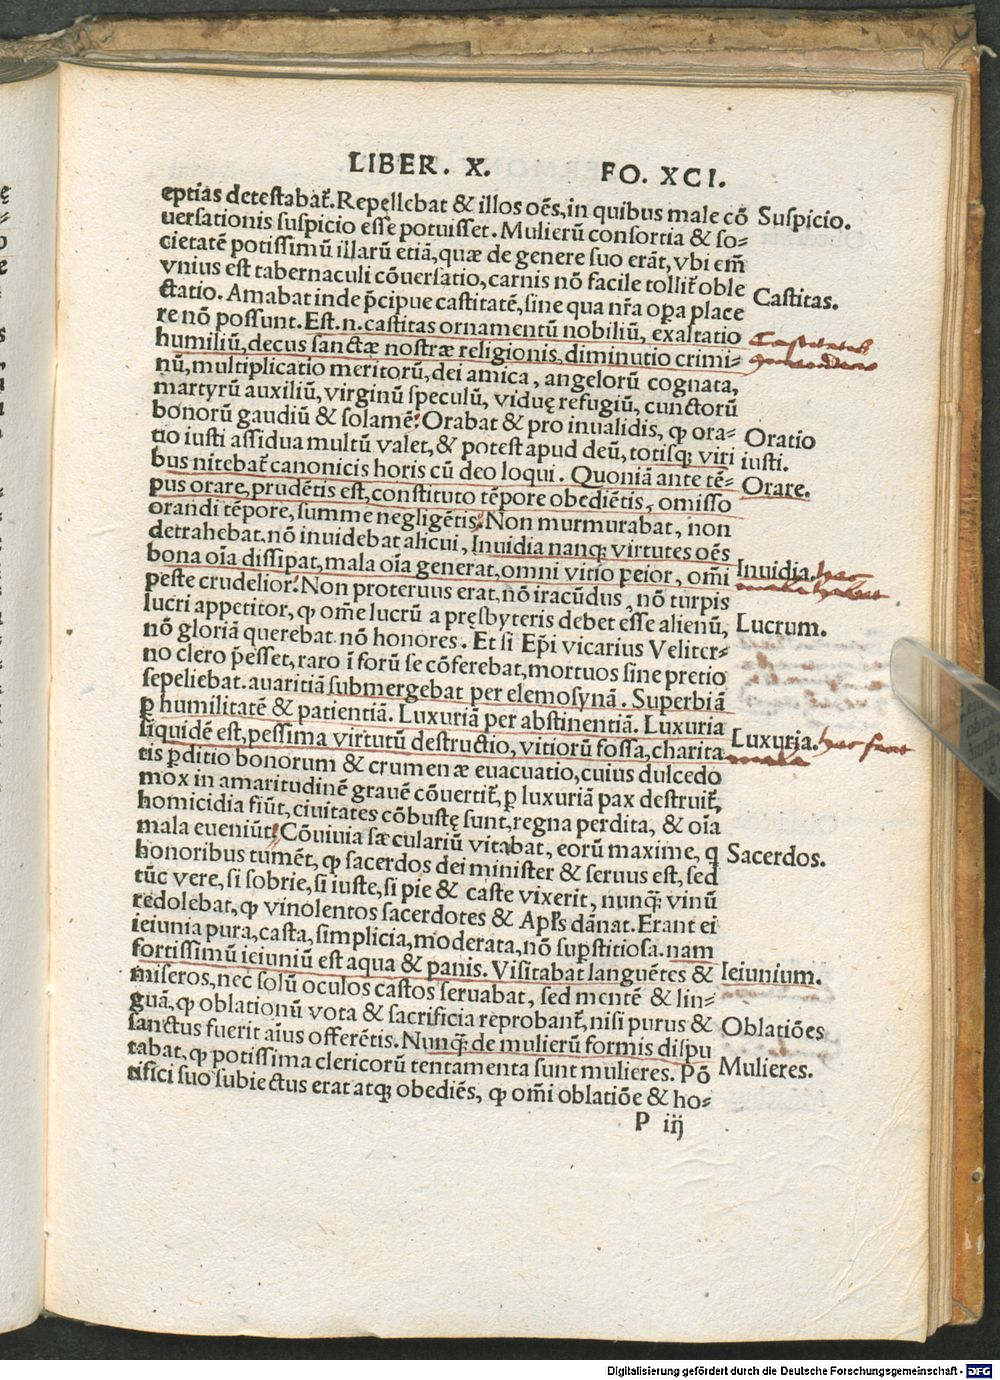 LIBER. X. FO. XCI.
eptias detestabat᷑. Repęllebat & illos oēs, in quibus male cō
uersationis suspicio esse potuisset. Mulierū consortia & so-
cietatē potissimū illarū etiā, quæ de genere suo erāt, vbi em̄
vnius est tabernaculi cōuersatio, carnis nō facile tollit᷑ oble
ctatio. Amabat inde p̄cipue castitatē, sine qua nr̄a oꝑa place
re nō possunt. Est. n. castitas ornamentū nobiliū, exaltatio
humiliū, decus sanctæ nostræ religionis, diminutio crimi-
nū, multiplicatio meritorū, dei amica, angelorū cognata,
martyrū auxiliū, virginū speculū, viduę refugiū, cunctorū
bonorū gaudiū & solamē. Orabat & pro inualidis, ꝙ ora-
tio iusti assidua multū valet, & potest apud deū, totisqꝫ viri
bus nitebat᷑ canonicis horis cū deo loqui. Quoniā ante tē-
pus orare, prudētis est, constituto tēpore obediētis, omisso
orandi tēpore, summe negligētis. Non murmurabat, non
detrahebat, nō inuidebat alicui, Inuidia nanqꝫ virtutes oēs
bona oīa dissipat, mala oīa generat, omni vitio peior, om̄i
peste crudelior. Non proteruus erat, nō iracūdus, nō turpis
lucri appetitor, ꝙ om̄e lucrū a pręsbyteris debet esse alienū,
nō gloriā querebat nō honores. Et si Ep̄i vicarius Veliter-
no clero p̄esset, raro ī forū se cōferebat, mortuos sine pretio
sepeliebat. auaritiā submergebat per elemosynā. Superbiā
ꝑ humilitatē & patientiā. Luxuriā per abstinentiā. Luxuria
siquidē est, pessima virtutū destructio, vitiorū fossa, charita
tis ꝑditio bonorum & crumenæ euacuatio, cuius dulcedo
mox in amaritudinē grauē cōuertit᷑, ꝑ luxuriā pax destruit᷑,
homicidia fiūt, ciuitates cōbustę sunt, regna perdita, & oīa
mala eueniūt. Cōuiuia sæculariū vitabat, eorū maxime, q
honoribus tumēt, ꝙ sacerdos dei minister & seruus est, sed
tūc vere, si sobrie, si iuste, si pie & caste vixerit, nunqꝫ̄ vinū
redolebat, ꝙ vinolentos sacerdotes & Apl's dānat. Erant ei
ieiunia pura, casta, simplicia, moderata, nō suꝑstitiosa. nam
fortissimū ieiuniū est aqua & panis. Visitabat languētes &
miseros, nec solū oculos castos seruabat, sed mentē & lin-
guā, ꝙ oblationū vota & sacrificia reprobant᷑, nisi purus &
sanctus fuerit aīus offerētis. Nunqꝫ̄ de mulierū formis dispu
tabat, ꝙ potissima clericorū tentamenta sunt mulieres. Pō
tifici suo subiectus erat atqꝫ obediēs, ꝙ om̄i oblatiōe & ho-
P iij
Suspicio.
Castitas.
Castitatis
Oratio
iusti.
Orare.
Inuidia. hec
mala habet
Lucrum.
Luxuria. hec facit
mala
Sacerdos.
Ieiunium.
Oblatiōes
Mulieres.
Digitalisierung gefördert durch die Deutsche Forschungsgemeinschaft - DFG